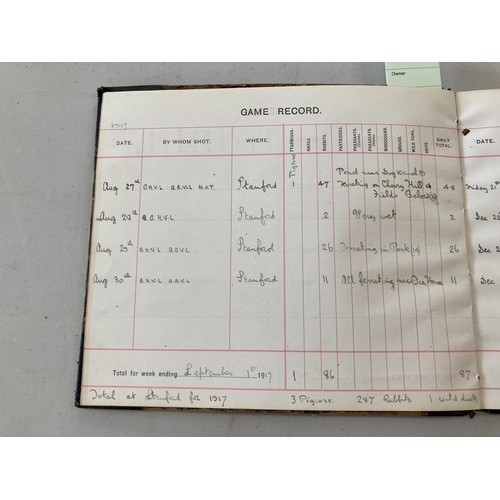 Owner
GAME RECORD.
1917
DATE. BY WHOM SHOT. WHERE. PTARMIGAN. HARES. RABBITS. PARTRIDGES. PHEASANTS. PHEASANTS. WOODCOCKS. GROUSE. WILD FOWL. SNIPE. DAILY TOTAL.
Pigeons
Pond near Dog Kennel
Aug 27th O.H.V.L. Q.Q.V.L. H.O.T. Stanford 1 47 Ferreting on Cherry Hill & 48
Fields Below
Aug 28th Q.Q.H.V.L Stanford 2 Very wet 2
Aug 29th O.H.V.L Q.Q.V.L. Stanford 26 Ferreting in Park 26
Aug 30th O.H.V.L Q.Q.V.L. Stanford 11 All ferreting near Ice House 11
Friday 21st
Dec 22
Dec 2
Dec
Total for week ending September 1st 1917 1 86 87
Total at Stanford for 1917 3 Pigeons. 287 Rabbits 1 Wild duck